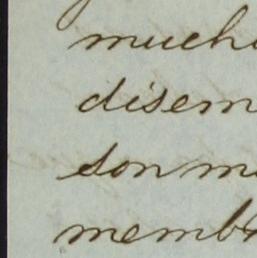 mucho
disem
son m
memb